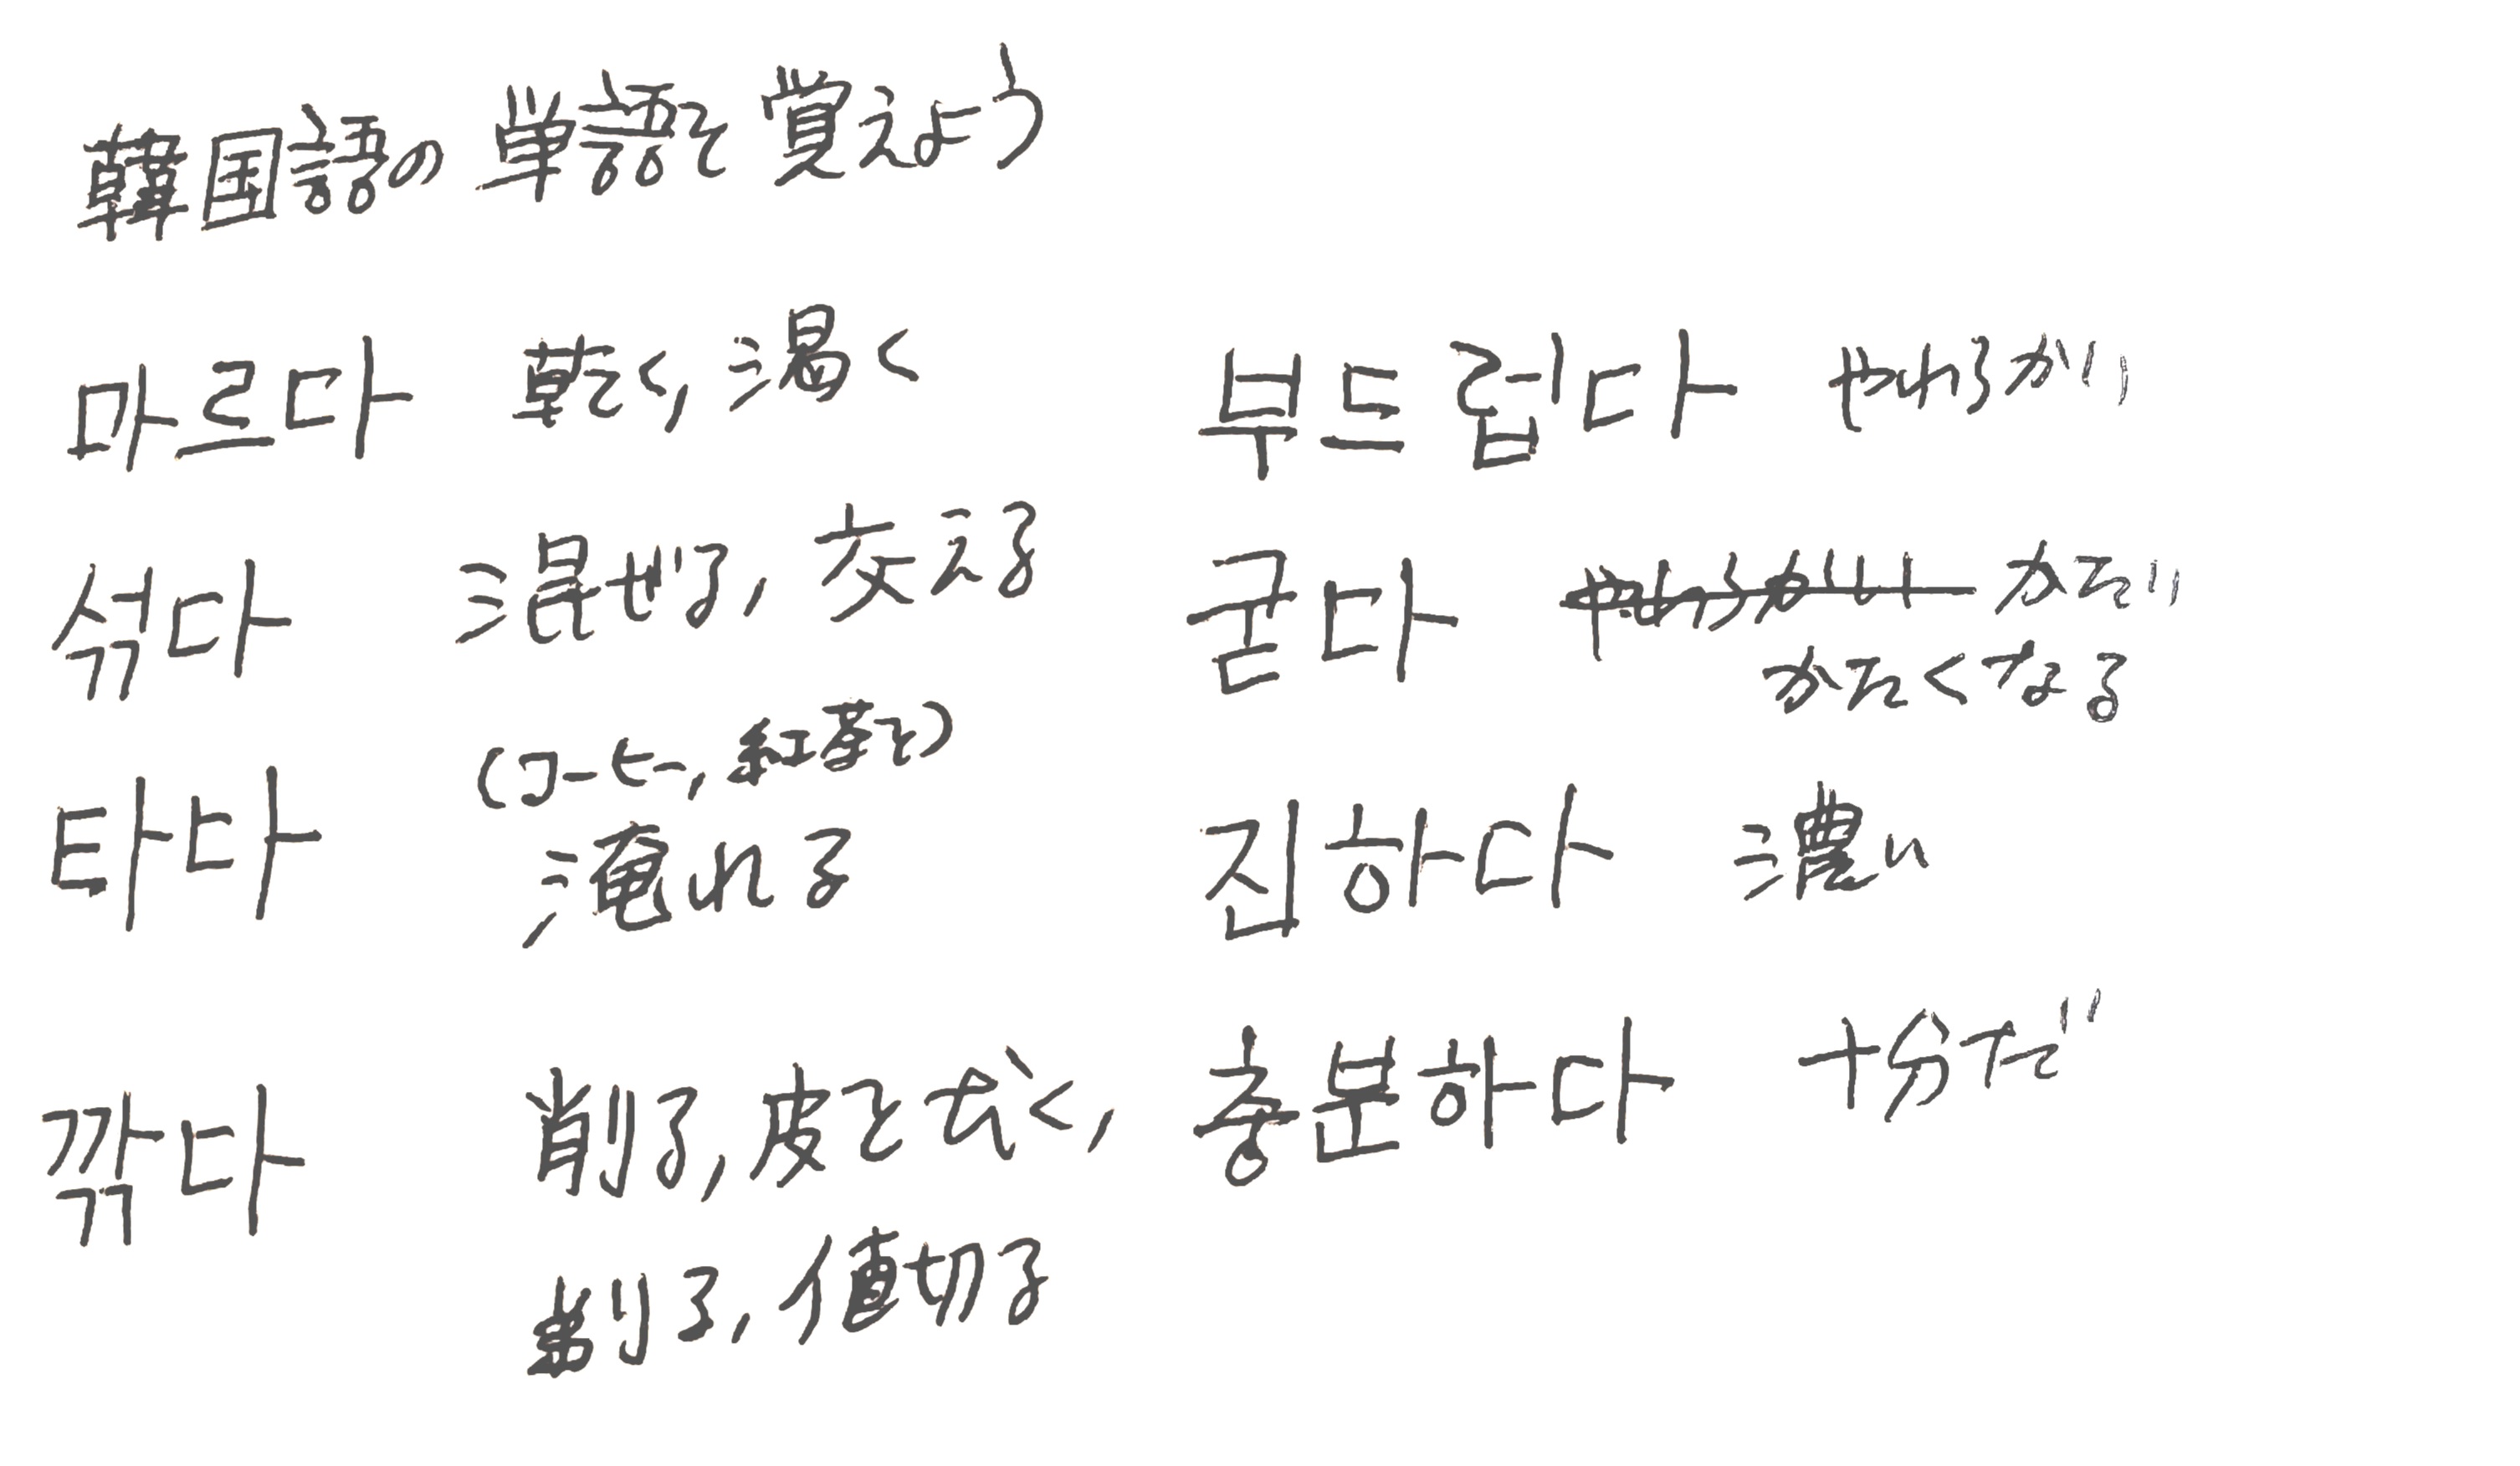 韓国語の単語を覚えよう
마르다 乾く, 渇く
섞다 混ぜる, 交える
(コーヒー, 紅茶を)
타다 淹れる
깎다 削る, 皮をむく,
剃る, 値切る
부드럽다 やわらかい
굳다 やわらかい かたい
かたくなる
진하다 濃い
충분하다 十分だ